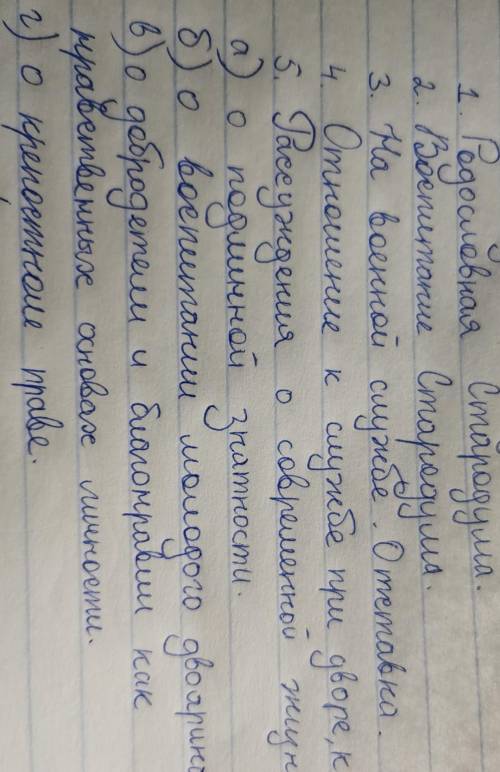 1. Родословная Стародума.
2. Воспитание Стародума.
3. На военной службе. Отставка.
4. Отношение к службе при дворе, к
5. Рассуждения о современной жизн
а) о подлинной знатности.
б) о воспитании молодого дворянин
в) о добродетели и благонравии как
нравственных основах личности.
г) о крепостном праве.